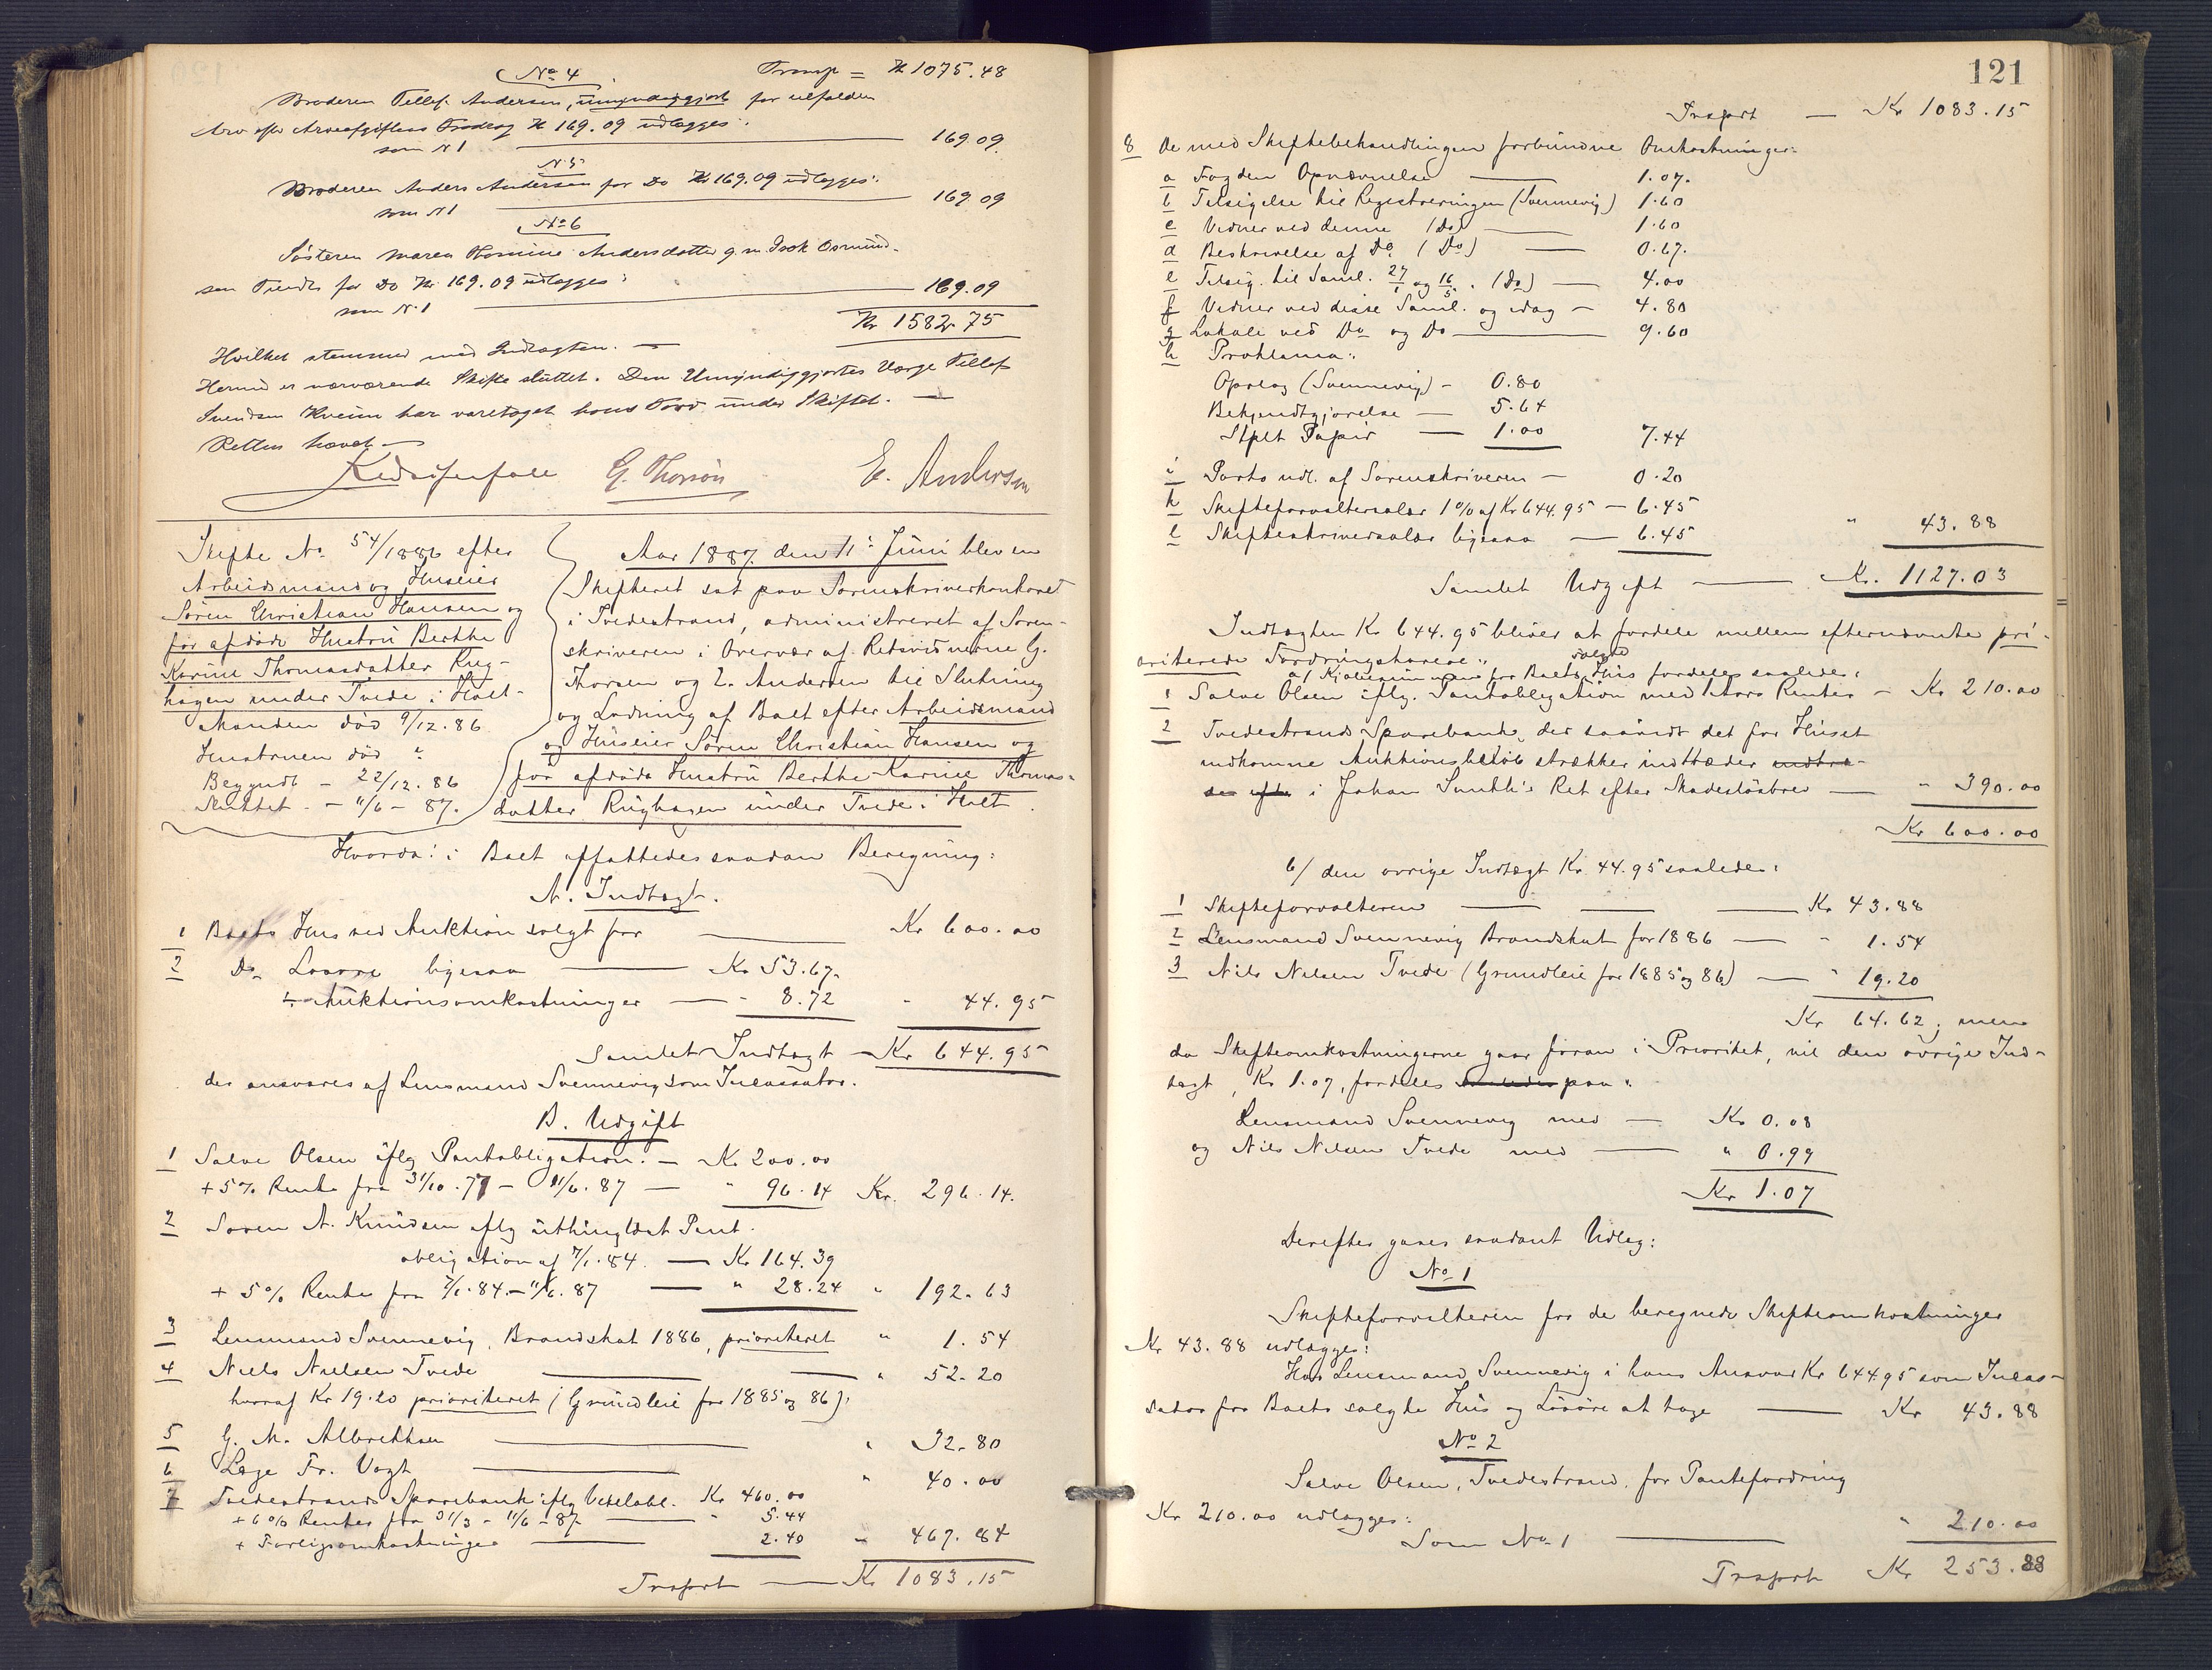 No 4
Transp = Kr 1075.48
Broderen Tellef Andersen, umyndiggjort for tilfalden
Arv efter Arveafgiftens Fradrag Kr 169.09 udlægges:
som N 1 169.09
N 5
Broderen Anders Andersen for Do Kr 169.09 udlægges:
som N 1 169.09
No 6
Søsteren Maren Andersdatter g. m. Isak Osmund-
sen for Do Kr. 169.09 udlægges:
som N. 1 169.09
Kr 1582.75
Hvilket stemmer med Indtægten. —
Hermed er nærværende Skifte sluttet. Den Umyndiggjortes Værge Tellef
Svendsen Kveim har varetaget hans Tarv under Skiftet. —
Retten hævet —
G. Thorsen E. Andersen
Skifte No 54/1886 efter
Arbeidsmand og Huseier
Søren Christian Hansen og
før afdøde Hustru Berthe
Karine Thomasdatter Rug-
hagen under Tvede i Holt.
Manden død 9/12.86
Hustruen død "
Begyndt – 22/12.86
Sluttet – 11/6 – 87.
Aar 1887 den 11te Juni blev en
Skifteret sat paa Sorenskriverkontoret
i Tvedestrand, administreret af Soren-
skriveren i Overvær af Retsvidnerne G.
Thorsen og E. Andersen til Slutning
og Lodning af Boet efter Arbeidsmand
og Huseier Søren Christian Hansen og
før afdøde Hustru Berthe Karine Thomas-
datter Rughagen under Tvede i Holt.
Hvorda: i Boet affattedes saadan Beregning:
A. Indtægt.
1 Boets Hus ved Auktion solgt for Kr 600.00
2 Do Løsøre ligesaa Kr 53.67
÷ Auktionsomkostninger " 8.72 " 44.95
Samlet Indtægt Kr 644.95
der ansvares af Lensmand Svennevig som Incassator.
B. Udgift
1 Salve Olsen iflg Pantobligation. — Kr 200.00
+ 5% Rente fra 31/10.77 – 11/6.87 — " 96.14 Kr. 296.14.
2 Søren A. Knudsen iflg uthinglæst Pant-
obligation af 7/1.84. — Kr 164.39
+ 5% Rente fra 7/1.84 – 11/6.87 — " 28.24 " 192.63
3 Lensmand Svennevig, Brandskat 1886, prioriteret " 1.54
4 Niels Nielsen Tvede " 52.20
hvoraf Kr 19.20 prioriteret (Grundleie for 1885 og 86).
5 G. M. Albrethsen " 32.80
6 Læge Fr. Vogt " 40.00
7 Tvedestrands Sparebank iflg Vexelobl. Kr 460.00
+ 6% Renter fra 31/3 – 11/6 – 87 " 5.44
+ Forligsomkostninger 2.40 " 467.84
Trsport — Kr 1083.15
121
Trsport — Kr 1083.15
8 De med Skiftebehandlingen forbundne Omkostninger:
a Fogden Opnævnelse 1.07.
b Tilsigelse til Registreringen (Svennevig) 1.60
c Vidner ved denne (Do) 1.60
d Beskrivelse af Do (Do) 0.67.
e Tilsig. til Saml. 27/1 og 16/5. (Do) 4.00
f Vidner ved disse Saml. og idag – 4.80
g Lokale ved Do og Do 9.60
h Proklama:
Opslag (Svennevig) – 0.80
Bekjendtgjørelse — 5.64
Stplt Papir — 1.00 7.44
i Porto udl. af Sorenskriveren – 0.20
k Skifteforvaltersalær 1% af Kr 644.95 – 6.45
l Skifteskriversalær ligesaa — 6.45 " 43.88
Samlet Udgift Kr. 1127.03
Indtægten Kr 644.95 bliver at fordele mellem efternævnte pri-
oriterede Fordringshavere:
a/ Kjøbesummen for Boets solgte Hus fordeles saaledes:
1 Salve Olsen iflg. Pantobligation med Aars Renter – Kr 210.00
2 Tvedestrands Sparebank, der saavidt det for Huset
indkomne Auktionsbeløb strækker indtræder indtræ-
der efter i Johan Smith's Ret efter Skadesløsbrev — " 390.00
Kr 600.00
b/ den øvrige Indtægt Kr. 44.95 saaledes:
1 Skifteforvalteren Kr 43.88
2 Lensmand Svennevig Brandskat for 1886 — " 1.54
3 Nils Nilsen Tvede (Grundleie for 1885 og 86) — " 19.20
Kr 64.62; men
da Skifteomkostningerne gaar foran i Prioritet, vil den øvrige Ind-
tægt, Kr 1.07, fordeles paa:
Lensmand Svennevig med — Kr 0.08
og Nils Nilsen Tvede med " 0.99
Kr 1.07
Derefter gjøres saadant Udlæg:
No 1
Skifteforvalteren for de beregnede Skifteomkostninger
Kr 43.88 udlægges:
Hos Lensmand Svennevig i hans Ansvar Kr 644.95 som Incas-
sator for Boets solgte Hus og Løsøre at tage — Kr 43.88
No 2
Salve Olsen, Tvedestrand, for Pantefordring
Kr 210.00 udlægges:
Som No 1 " 210.00
Trsport Kr 253.88